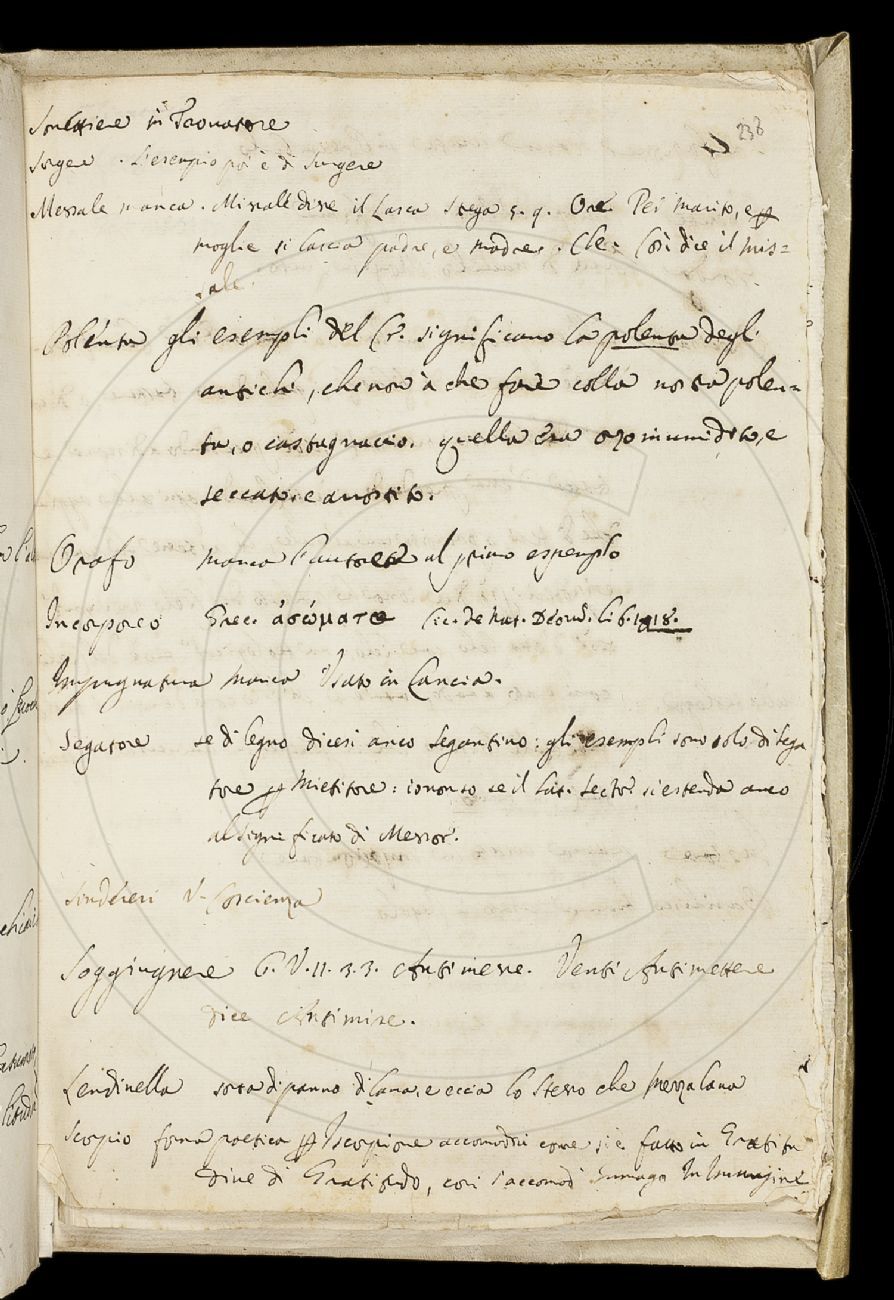 238
in
Sorgere. L'esempio poi è di Surgere
Messale manca. Missale disse il Lasca Strega 5. 9. Ora. Pel marito, e
moglie si lascia padre, e madre. Cle. Così dice il mis=
sale.
Polenta gli esempli del Cr. significano la polenta degli
antichi, che non à che fare colla nostra polen=
ta, o castagnaccio. quella era orzo inumidito, e
seccato, e arrostito.
Orafo manca l'autore al primo esemplo
Incorporeo Grec. ἀσώματο Cic. de Nat. Deor. lib. 1
Impugnatura manca Usato in Lancia.
Segatore se di legno dicesi anco Segantino: gli esempli sono solo di Sega
tore Mietitore: io non so se il Lat. Sector si estenda anco
al significato di Messor.
Sinderesi V. Coscienza
Soggiugnere G. V. 11. 3. 3. Antimesse. Venti Antimettere
dice Antimise.
Lendinella sorta di panno di lana, e ecci lo stesso che Mezzalana
Scorpio forma poetica Iscorpione accomodisi come si è fatto in Gratitu
dine di Gratitudo, così s'accomodi Immago in Immagine